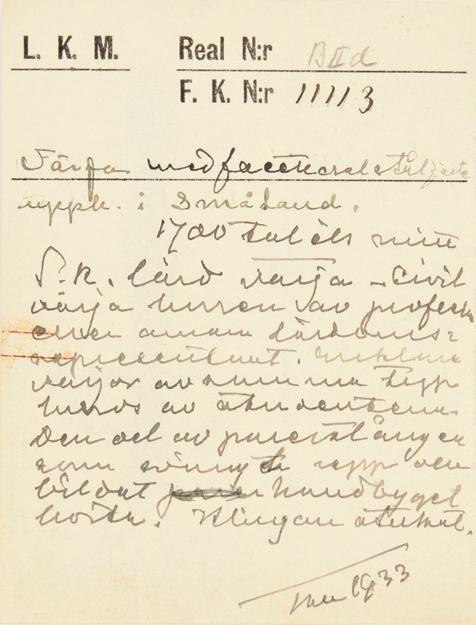 L. K. M. Real N:r B II d
F. K. N:r 11113
Värja med facetterade
uppk. i Småland.
1700 talets mitt
S. k. lärd värja - civil
värja buren av profess
eller annan lärdoms-
representant. Enklare
värjor av samma typ
buros av studenterna.
Den del av parerstången
som svängt upp och
bildat handbygel
borta. Klingan stukad.
1933